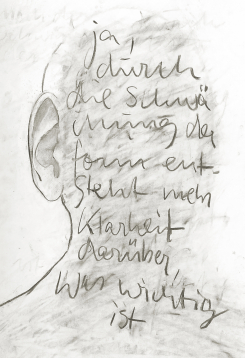 ja,
durch
die Schwä
chung der
form ent-
steht mehr
Klarheit
darüber,
was wichtig
ist